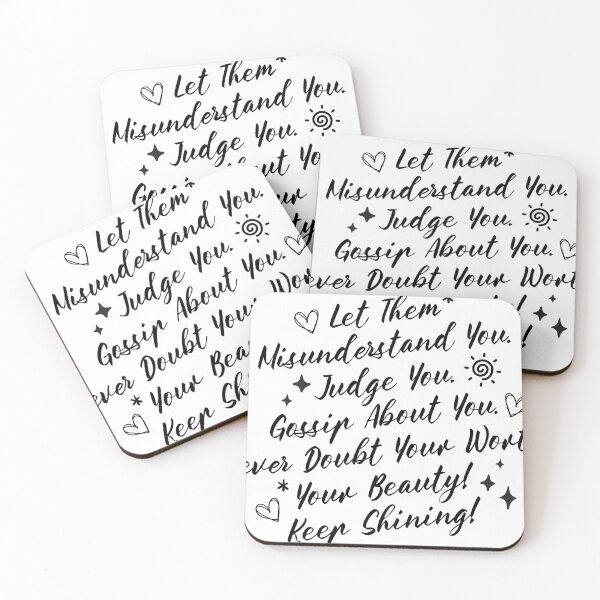 Let Them*
Misunderstand You.
Judge You.
Gossip About Yo
Let Them*
Misunderstand You.
Judge You.
Gossip About You.
ever Doubt Your Wort
Let Them*
Misunderstand You.
Judge You.
Gossip About You.
ever Doubt Your Wor
*Your Beau
Keep Shin
Let Them*
Misunderstand You.
Judge You.
Gossip About You.
ever Doubt Your Wort
*Your Beauty!
Keep Shining!